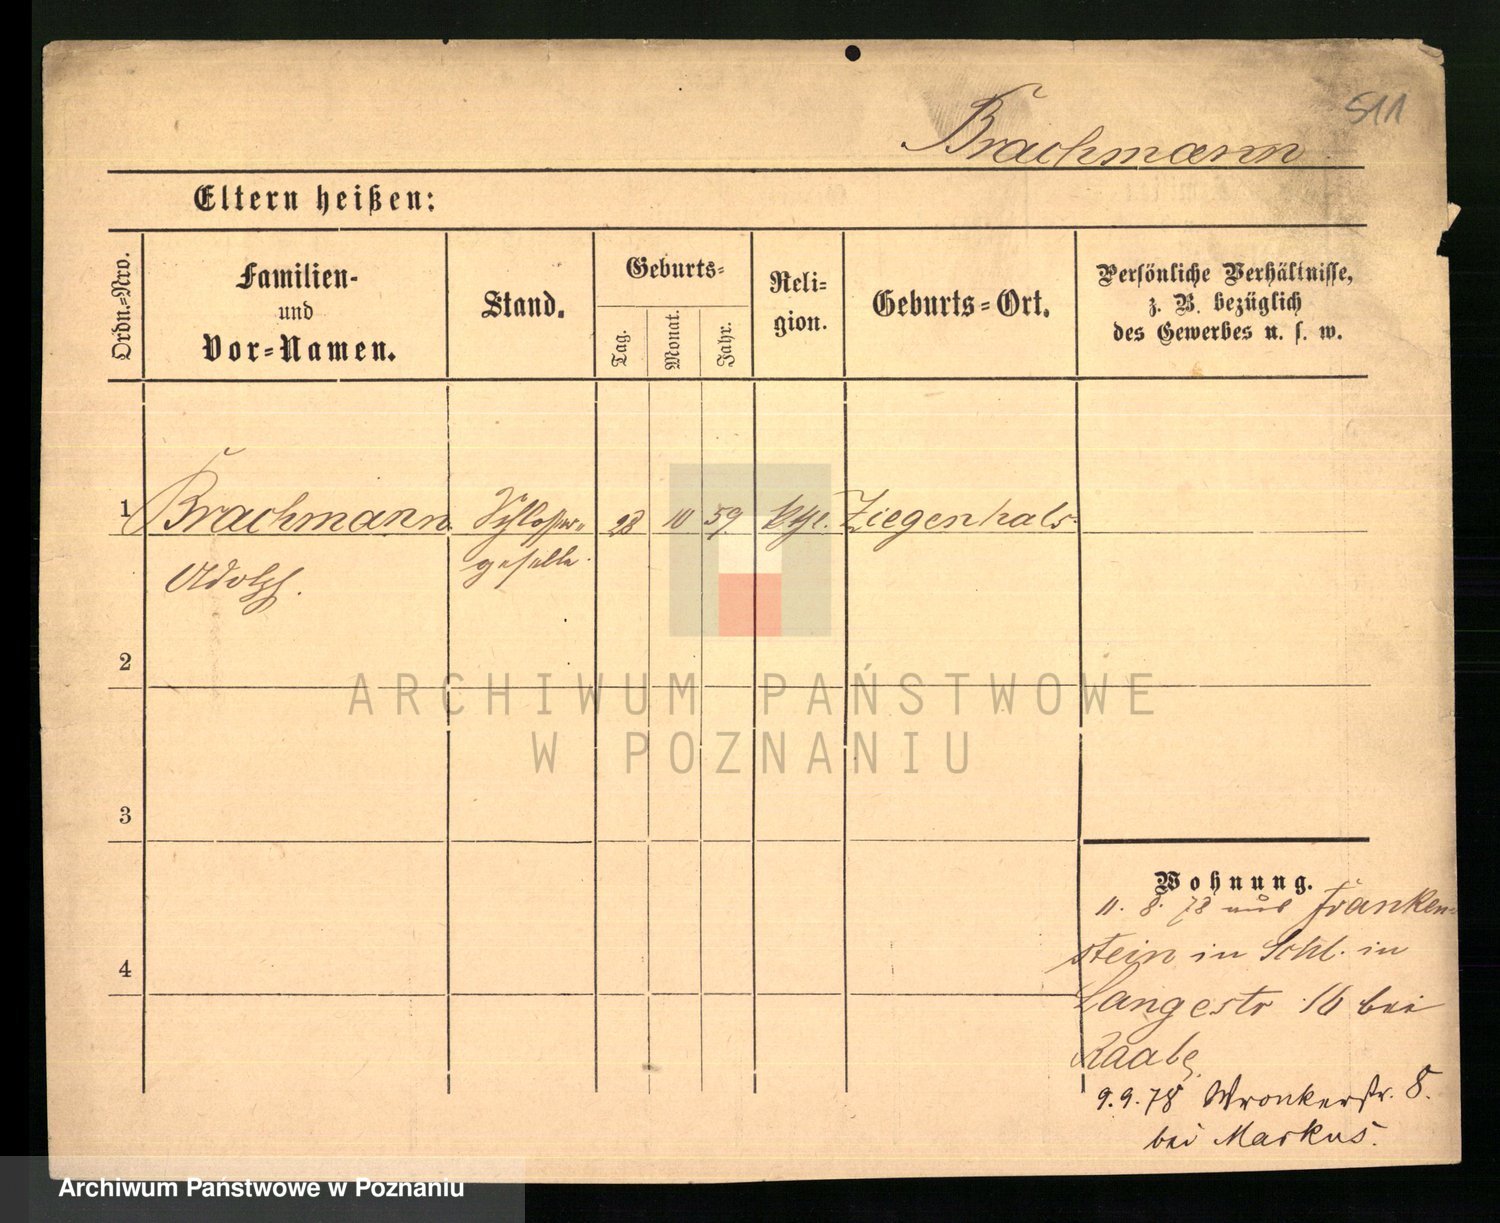 511
Brachmann
Eltern heißen:
Ordn.-Nro.
Familien-
und
Vor-Namen.
Stand.
Geburts-
Tag.
Monat.
Jahr.
Reli-
gion.
Geburts-Ort.
Persönliche Verhältnisse,
z. B. bezüglich
des Gewerbes u. s. w.
1 Brachmann Schlosser- 28 10 59 kth. Ziegenhals
Adolph. geselle.
2
3
4
Wohnung.
11. 8. 78 aus Franken-
stein in Schl. in
Langestr 16 bei
Raabe.
9.9.78 Wronkerstr. 8.
bei Markus.
ARCHIWUM PAŃSTWOWE
W POZNANIU
Archiwum Państwowe w Poznaniu